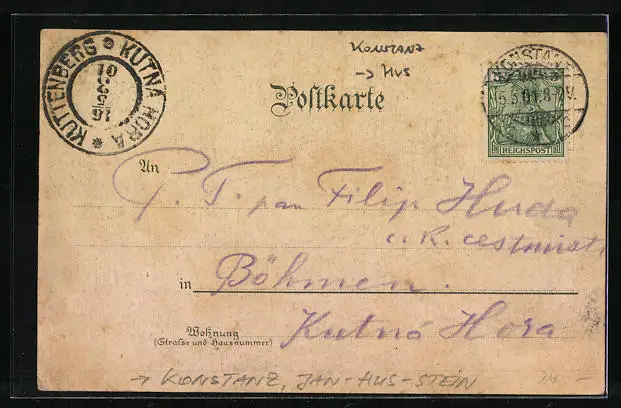 KUTTENBERG * KUTNÁ HORA *
Konstanz
→ Hus
Postkarte
KONSTANZ
REICHSPOST
An
P. T. pan Filip Huda
c. k.
in Böhmen.
Wohnung
(Straße und Hausnummer)
Kutná Hora
→ KONSTANZ, JAN-HUS-STEIN